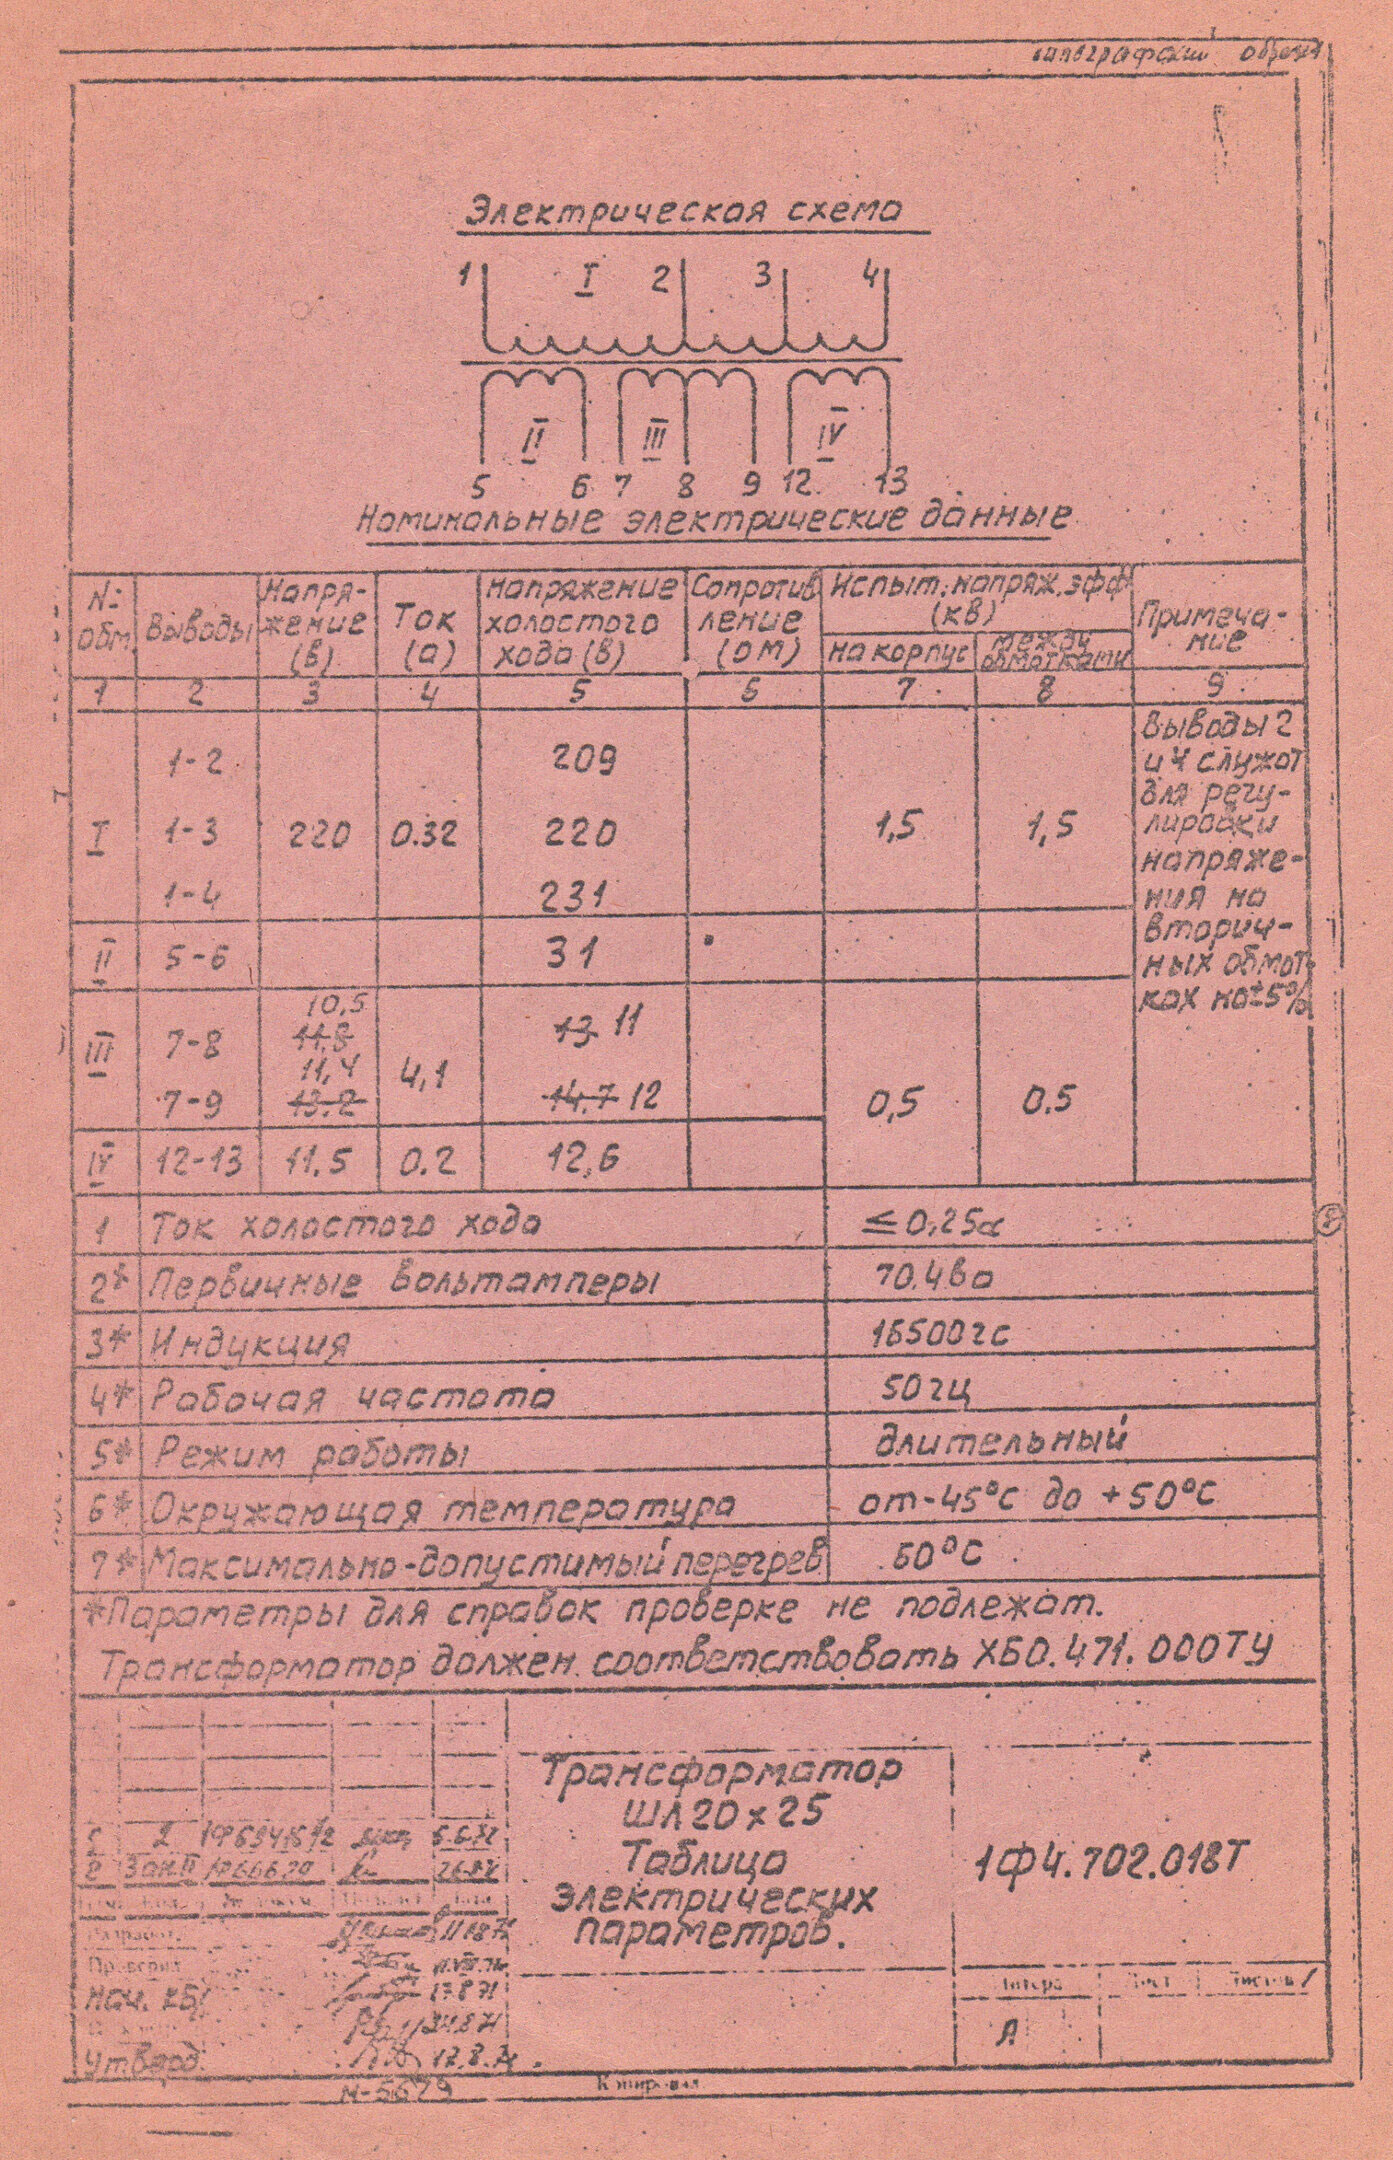 Электрическая схема
1 I 2 3 4
II III IV
5 6 7 8 9 12 13
Номинальные электрические данные
№ обм. Выводы Напряжение (в) Ток (а) Напряжение холостого хода (в) Сопротивление (ом) Испыт. напряж. эфф. (кв) Примечание
на корпус между обмотками
1 2 3 4 5 6 7 8 9
I 1-2 209
1-3 220 0.32 220 1,5 1,5
1-4 231
Выводы 2
и 4 служат
для регу-
лировки
напряже-
ния на
вторич-
ных обмот-
ках на ±5%
II 5-6 31
III 7-8 10,5 11,8 13 11
7-9 11,4 13.2 4,1 14,7 12 0,5 0.5
IV 12-13 11.5 0.2 12,6
1 Ток холостого хода ≤0,25а
2* Первичные вольтамперы 70.4ва
3* Индукция 16500гс
4* Рабочая частота 50гц
5* Режим работы длительный
6* Окружающая температура от-45°С до +50°С
7* Максимально-допустимый перегрев 60°С
*Параметры для справок проверке не подлежат.
Трансформатор должен соответствовать ХБ0.471.000ТУ
Трансформатор
ШЛ20х25
Таблица
электрических
параметров.
1Ф4.702.018Т
Литера Лист Листов 1
А
2 Зап.II
Разработ.
Проверил
17.8.71
Нач. КБ
Утверд.
М-5679
Копировал